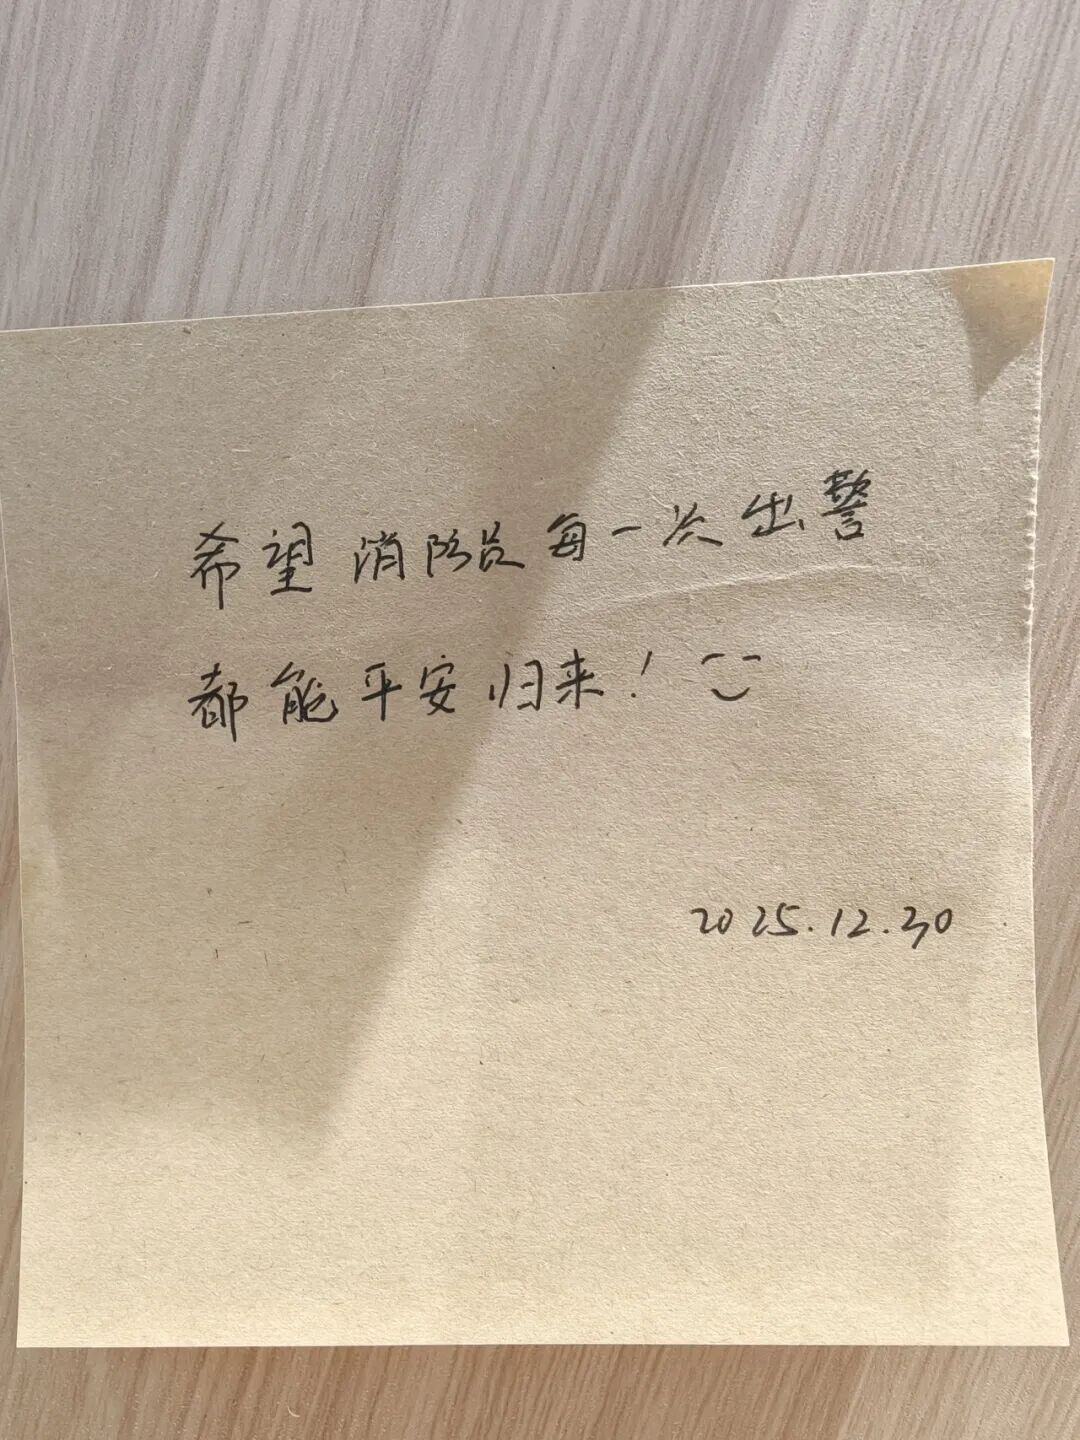 希望消防员每一次出警
都能平安归来！
2025.12.30